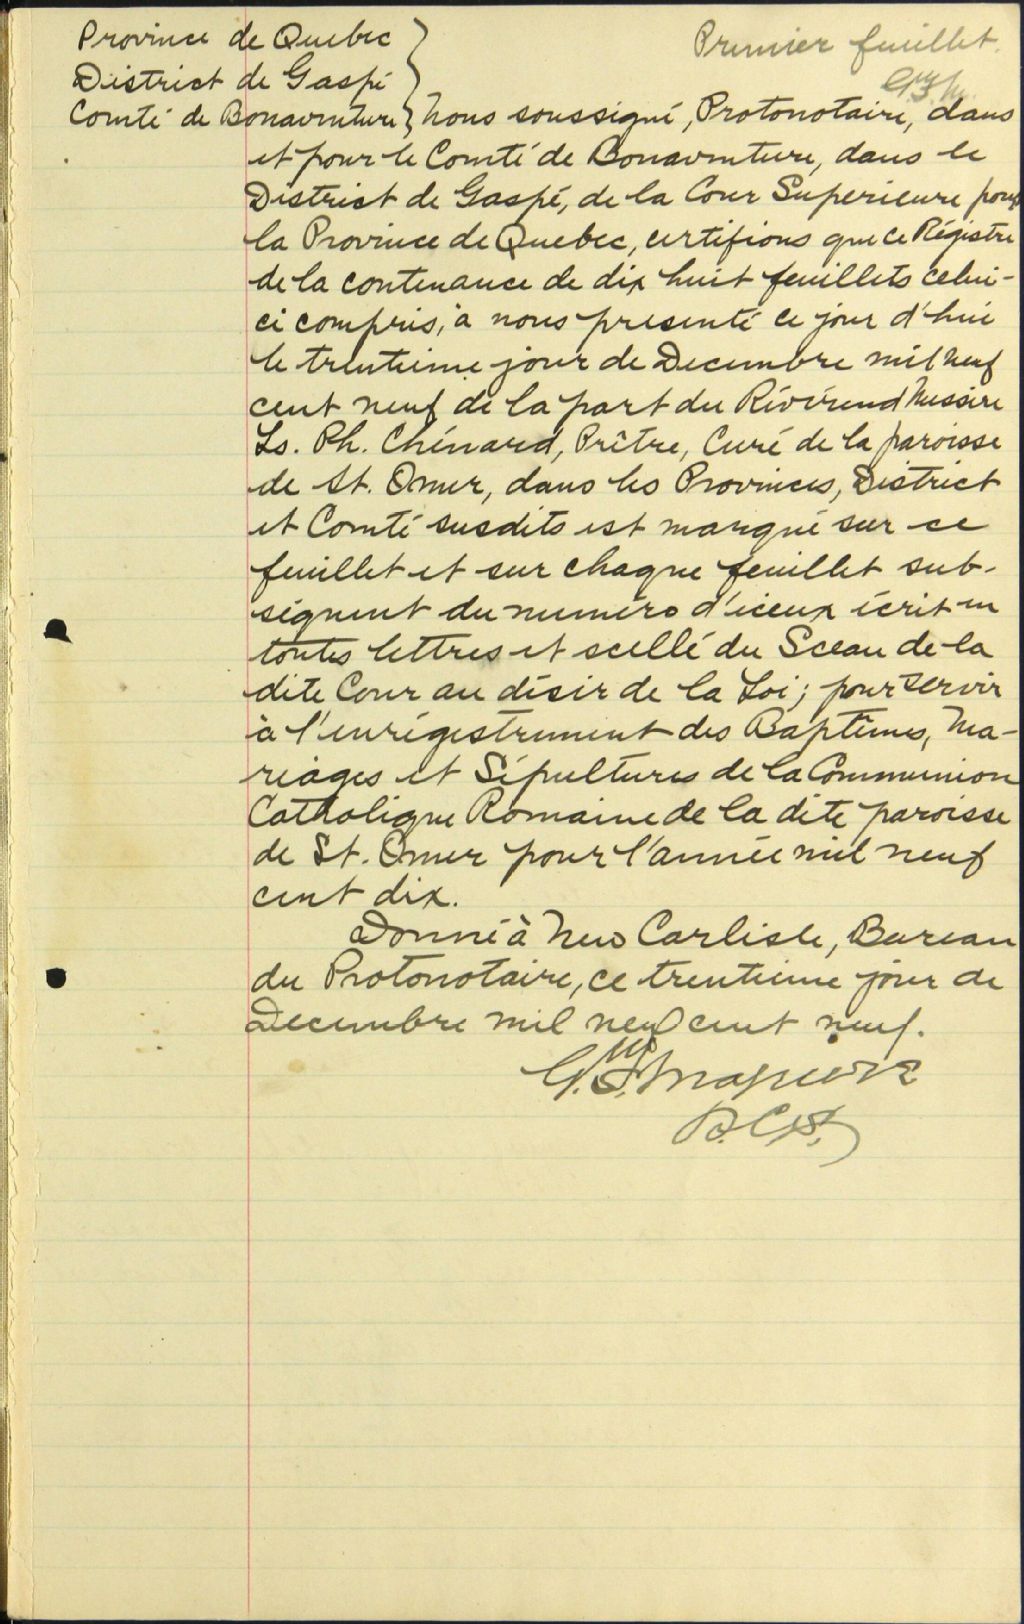 Province de Quebec
Premier feuillet.
District de Gaspé
Comté de Bonaventure} Nous soussigné, Protonotaire, dans
et pour le Comté de Bonaventure, dans le
District de Gaspé, de la Cour Superieure pour
la Province de Quebec, certifions que ce Régistre
de la contenance de dix huit feuillets celui-
ci compris, a nous presenté ce jour d'hui
le trentieme jour de Decembre mil neuf
cent neuf de la part du Révérend Messire
Ls. Ph. Chénard, Prêtre, Curé de la paroisse
de St. Omer, dans les Provinces, District
et Comté susdits est marqué sur ce
feuillet et sur chaque feuillet sub-
séquent du numéro d'iceux écrit en
toutes lettres et scellé du Sceau de la
dite Cour au désir de la Loi; pour servir
à l'enrégistrement des Baptêmes, Ma-
riages et Sépultures de la Communion
Catholique Romaine de la dite paroisse
de St. Omer pour l'année mil neuf
cent dix.
Donné à New Carlisle, Bureau
du Protonotaire, ce trentieme jour de
Decembre mil neuf cent neuf.